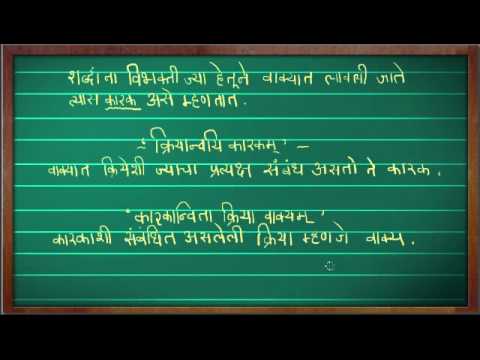 शब्दांना विभक्ती ज्या हेतूने वाक्यात लावली जाते
त्यास कारक असे म्हणतात.
" क्रियान्वयि कारकम् ' -
वाक्यात क्रियेशी ज्याचा प्रत्यक्ष संबंध असतो ते कारक.
"कारकान्विता क्रिया वाक्यम्'
कारकाशी संबंधित असलेली क्रिया म्हणजे वाक्य.